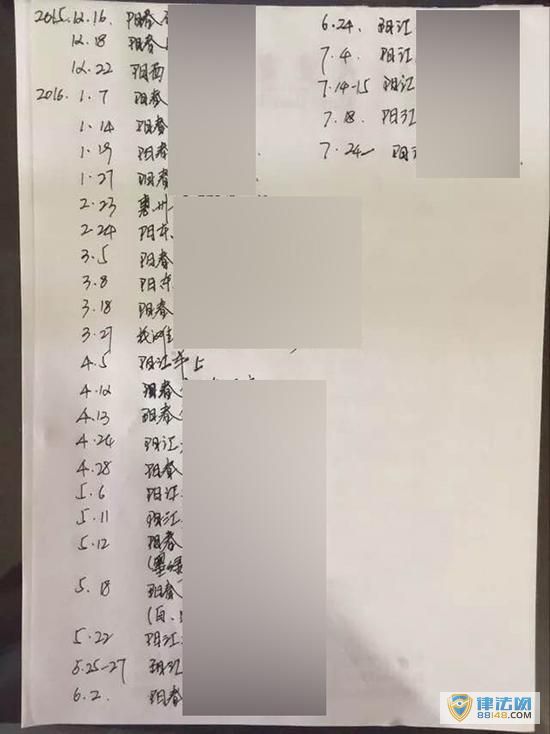 2015.12.16. 阳春
12.18 阳春
12.22 阳西
2016.1.7 阳春
1.14 阳春
1.19 阳春
1.27 阳春
2.23 惠州
2.24 阳东
3.5 阳春
3.8 阳东
3.18 阳春
3.27
4.5 阳江
4.12 阳春
4.13 阳春
4.24 阳江
4.28 阳春
5.6 阳江
5.11 阳江
5.12 阳春
(墨绿
5.18 阳春
(白、
5.22 阳江
5.25-27 阳江
6.2. 阳春
6.24. 阳江
7.4. 阳江
7.14-15 阳江
7.18. 阳江
7.24 阳江
律法网
88148.COM